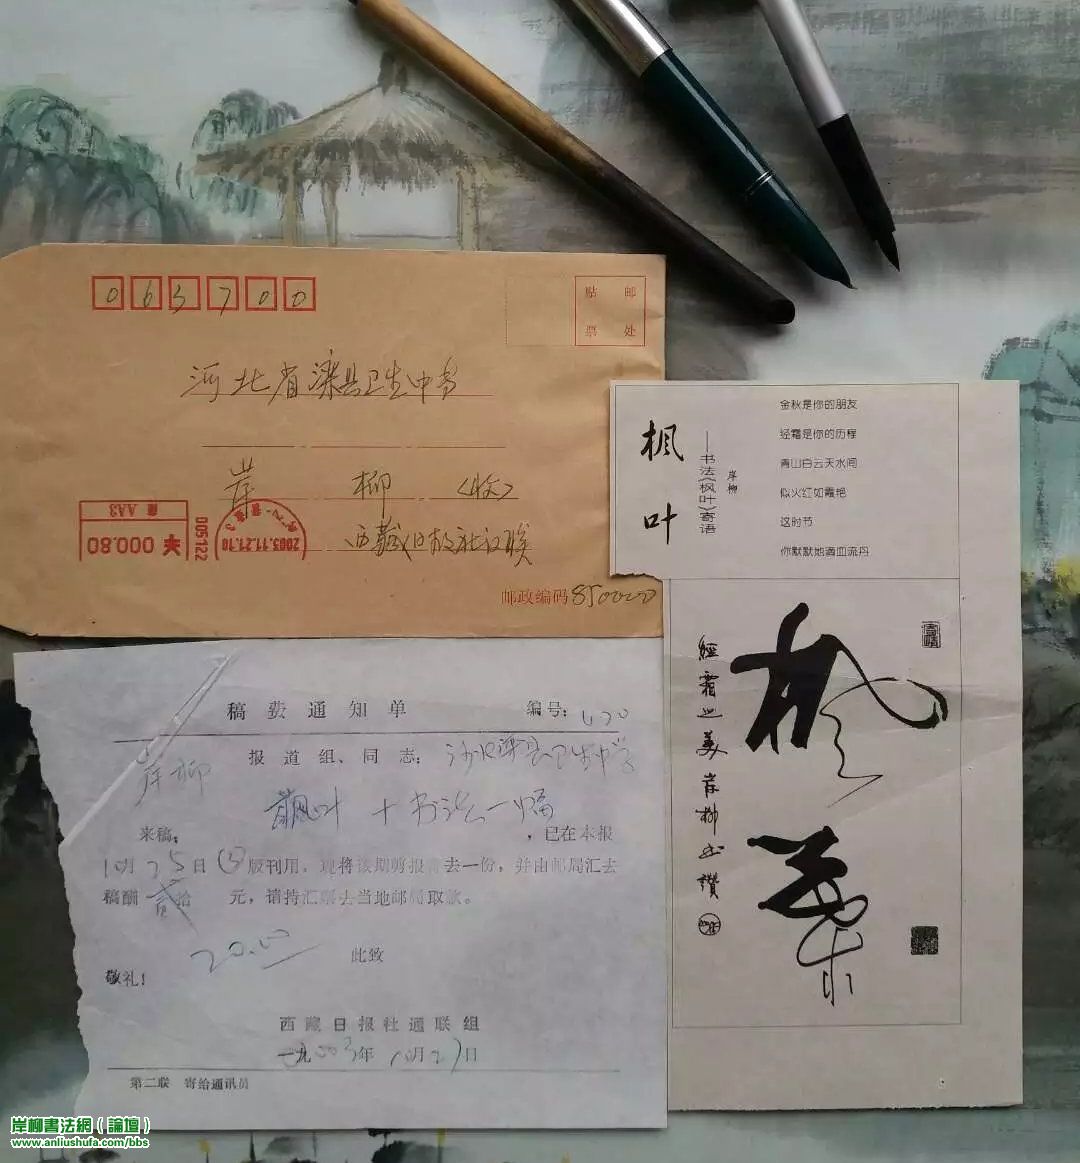 063700
贴 邮
票 处
河北省滦县卫生中学
岸 柳 (收)
藏 AA3
000.80
005122
2003.11.21.10
西藏日报社记联
邮政编码 850000
枫叶
——书法《枫叶》寄语
岸柳
金秋是你的朋友
经霜是你的历程
青山白云天水间
似火红如霞艳
这时节
你默默地滴血流丹
楓葉
經霜之美岸柳書讚
稿费通知单 编号:
报道组、 同志:
岸柳
枫叶 + 书法一幅
来稿: ,已在本报
10月25日(3)版刊用。现将该期剪报寄去一份,并由邮局汇去
稿酬 贰拾 元,请持汇票去当地邮局取款。
20.00
此致
敬礼!
西藏日报社通联组
2003年10月27日
第二联 寄给通讯员
岸柳書法網(論壇)
www.anliushufa.com/bbs